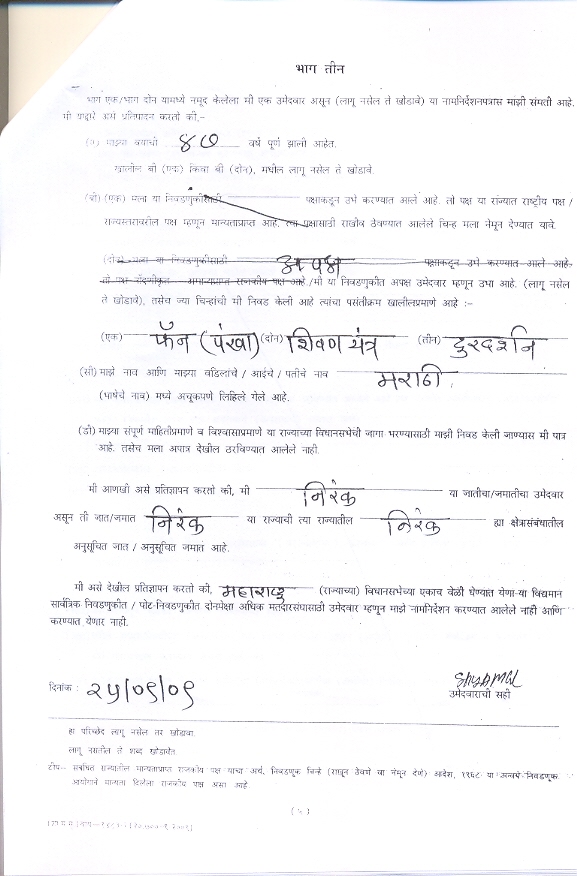 भाग तीन
भाग एक/भाग दोन यामध्ये नमूद केलेला मी एक उमेदवार असून (लागू नसेल ते खोडावे) या नामनिर्देशनपत्रास माझी संमती आहे.
मी याद्वारे असे प्रतिज्ञापन करतो की,-
(ए) माझ्या वयाची ४७ वर्षे पूर्ण झाली आहेत.
खालील बी (एक) किंवा बी (दोन), मधील लागू नसेल ते खोडावे.
(बी) (एक) मला या निवडणुकीसाठी पक्षाकडून उभे करण्यात आले आहे. तो पक्ष या राज्यात राष्ट्रीय पक्ष /
राज्यस्तरावरील पक्ष म्हणून मान्यताप्राप्त आहे. त्या पक्षासाठी राखीव ठेवण्यात आलेले चिन्ह मला नेमून देण्यात यावे.
(दोन) मला या निवडणुकीसाठी अपक्ष पक्षाकडून उभे करण्यात आले आहे.
तो पक्ष नोंदणीकृत अमान्यताप्राप्त राजकीय पक्ष आहे./मी या निवडणुकीत अपक्ष उमेदवार म्हणून उभा आहे. (लागू नसेल
ते खोडावे), तसेच ज्या चिन्हांची मी निवड केली आहे त्यांचा पसंतीक्रम खालीलप्रमाणे आहे :-
(एक) फॅन (पंखा) (दोन) शिवण यंत्र (तीन) दुरदर्शन
(सी) माझे नाव आणि माझ्या वडिलांचे / आईचे / पतीचे नाव मराठी
(भाषेचे नाव) मध्ये अचूकपणे लिहिले गेले आहे.
(डी) माझ्या संपूर्ण माहितीप्रमाणे व विश्वासाप्रमाणे या राज्याच्या विधानसभेची जागा भरण्यासाठी माझी निवड केली जाण्यास मी पात्र
आहे. तसेच मला अपात्र देखील ठरविण्यात आलेले नाही.
मी आणखी असे प्रतिज्ञापन करतो की, मी निरंक या जातीचा/जमातीचा उमेदवार
असून ती जात/जमात निरंक या राज्याची त्या राज्यातील निरंक ह्या क्षेत्रासंबंधातील
अनुसूचित जात / अनुसूचित जमात आहे.
मी असे देखील प्रतिज्ञापन करतो की, महाराष्ट्र (राज्याच्या) विधानसभेच्या एकाच वेळी घेण्यात येणाऱ्या विद्यमान
सार्वत्रिक निवडणुकीत / पोट-निवडणुकीत दोनपेक्षा अधिक मतदारसंघासाठी उमेदवार म्हणून माझे नामनिर्देशन करण्यात आलेले नाही आणि
करण्यात येणार नाही.
दिनांक : २५/०९/०९
उमेदवाराची सही
हा परिच्छेद लागू नसेल तर खोडावा.
लागू नसतील ते शब्द खोडावेत.
टीप- संबंधित राज्यातील मान्यताप्राप्त राजकीय पक्ष याचा अर्थ, निवडणूक चिन्हे (राखून ठेवणे व नेमून देणे) आदेश, १९६८ या अन्वये निवडणूक
आयोगाने मान्यता दिलेला राजकीय पक्ष असा आहे.
(५)